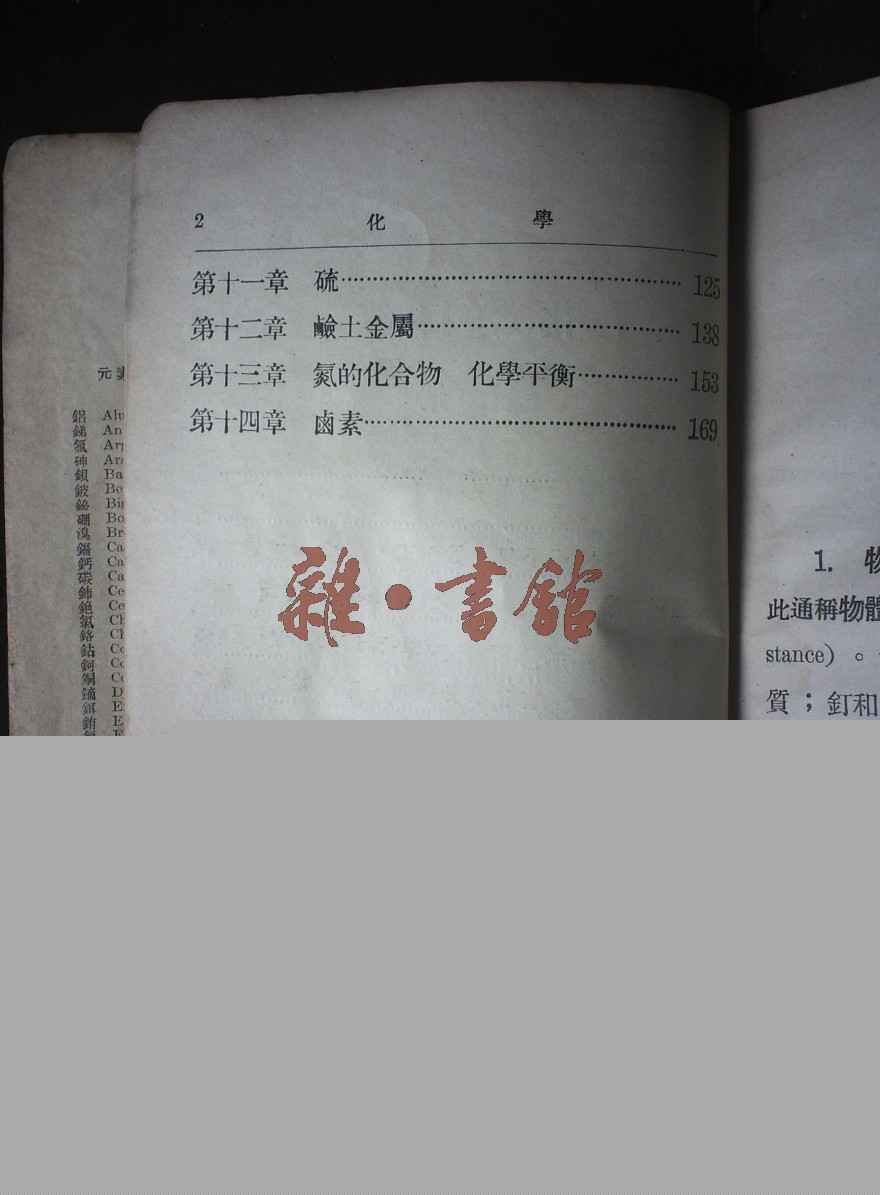 2 化 學
第十一章 硫 125
第十二章 鹼土金屬 138
第十三章 氮的化合物 化學平衡 153
第十四章 鹵素 169
雜·書館
元
鋁 Alu
銻 An
氬 Ar
砷 Ar
鋇 Ba
鈹 Be
鉍 Bi
硼 Bo
溴 Br
鎘 Ca
鈣 Ca
碳 Ca
鈰 Ce
銫 Ce
氯 Ch
鉻 Ch
鈷 Co
鈳 Co
銅 Co
鏑 D
鉺 E
銪 E
1. 物
此通稱物體
stance) 。
質；釘和